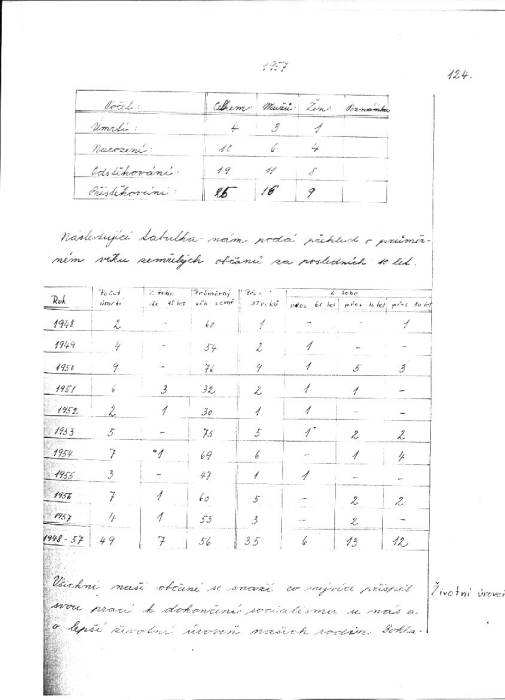 1957
124.
Počet: Celkem Mužů: Žen: Poznámka
Umrlí: 4 3 1
Narození: 10 6 4
Odstěhování: 19 11 8
Přistěhování: 25 16 9
Následující tabulka nám podá přehled o průměr-
ném věku zemřelých občanů za posledních 10 let.
Rok Počet úmrtí z toho do 15 let Průměrný věk z toho
přes 60 let přes 70 let přes 80 let
1948 2 - 60 1 - - 1
1949 4 - 54 2 1 - -
1950 9 - 76 9 1 5 3
1951 6 3 32 2 1 1 -
1952 2 1 30 1 1 - -
1953 5 - 75 5 1 2 2
1954 7 1 69 6 - 1 4
1955 3 - 47 1 1 - -
1956 7 1 60 5 - 2 2
1957 4 1 53 3 - 2 -
1948-57 49 7 56 35 6 13 12
Všichni naši občané se snaží co nejvíce přispět
svou prací k dokončení socialismu u nás a
o lepší životní úroveň našich rodin. Dokla-
Životní úroveň